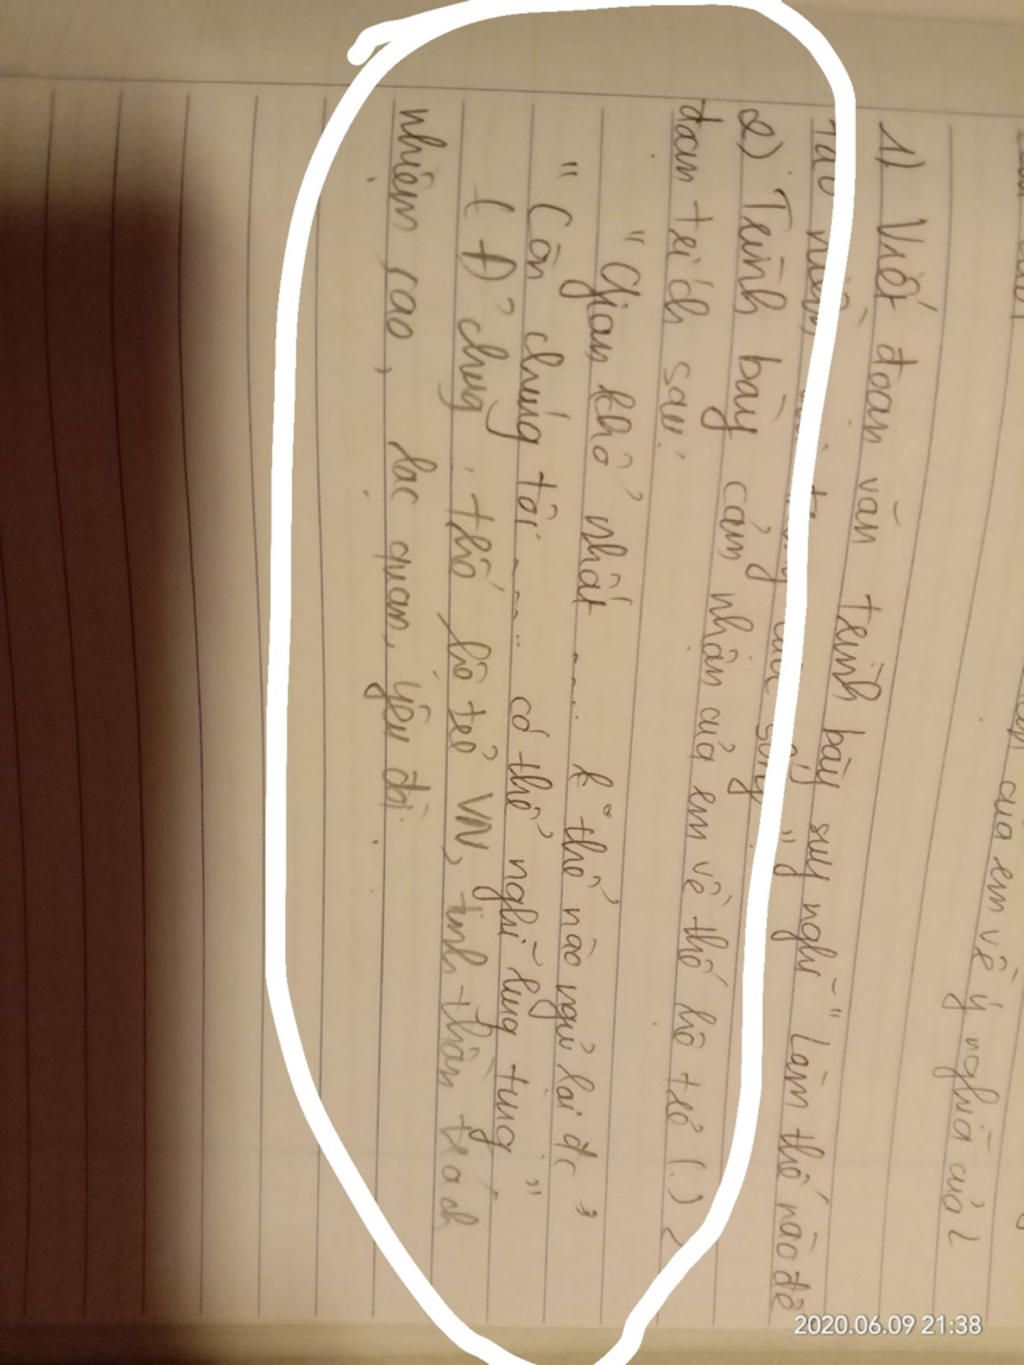 của em về ý nghĩa của 2
1) Viết đoạn văn trình bày suy nghĩ " Làm thế nào để
tạo niềm sống "
2) Trình bày cảm nhận của em về thế hệ trẻ (.) 2
đoạn trích sau:
" Gian khổ nhất .... k° thể nào ngủ lại đc "
" Còn chúng tôi ..... có thể nghĩ lung tung "
( Đ² chung : thế hệ trẻ VN, tinh thần trách
nhiệm cao, lạc quan, yêu đời.
2020.06.09 21:38